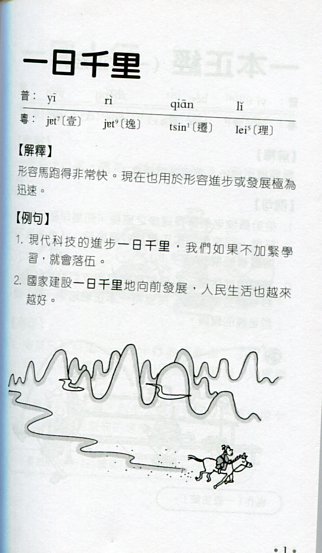 一日千里
普： yī rì qiān lǐ
粵： jɐt⁷〔壹〕 jɐt⁹〔逸〕 tsin¹〔遷〕 lei⁵〔理〕
【解釋】
形容馬跑得非常快。現在也用於形容進步或發展極為
迅速。
【例句】
1. 現代科技的進步一日千里，我們如果不加緊學
習，就會落伍。
2. 國家建設一日千里地向前發展，人民生活也越來
越好。
• 1 •